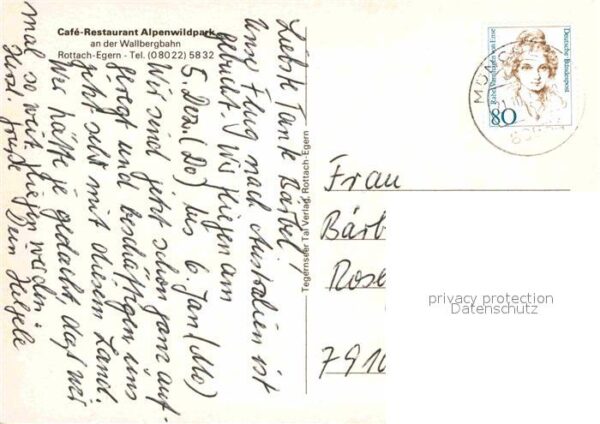 Café-Restaurant Alpenwildpark
an der Wallbergbahn
Rottach-Egern - Tel. (0 80 22) 58 32
Liebste Tante Bärbel!
Unser Flug nach Australien ist
gebucht. Wir fliegen am
5. Dez. (Do) bis 6. Jan (Mo)
Wir sind jetzt schon ganz auf-
geregt und beschäftigen uns
jetzt sehr mit diesem Land.
Wer hätte je gedacht, daß wir
mal so weit fliegen werden!
Herzl. Grüße Dein
Tegernseer Tal Verlag, Rottach-Egern
Deutsche Bundespost
Rahel Varnhagen von Ense
80
Frau
Bärb
Rose
7910
privacy protection
Datenschutz